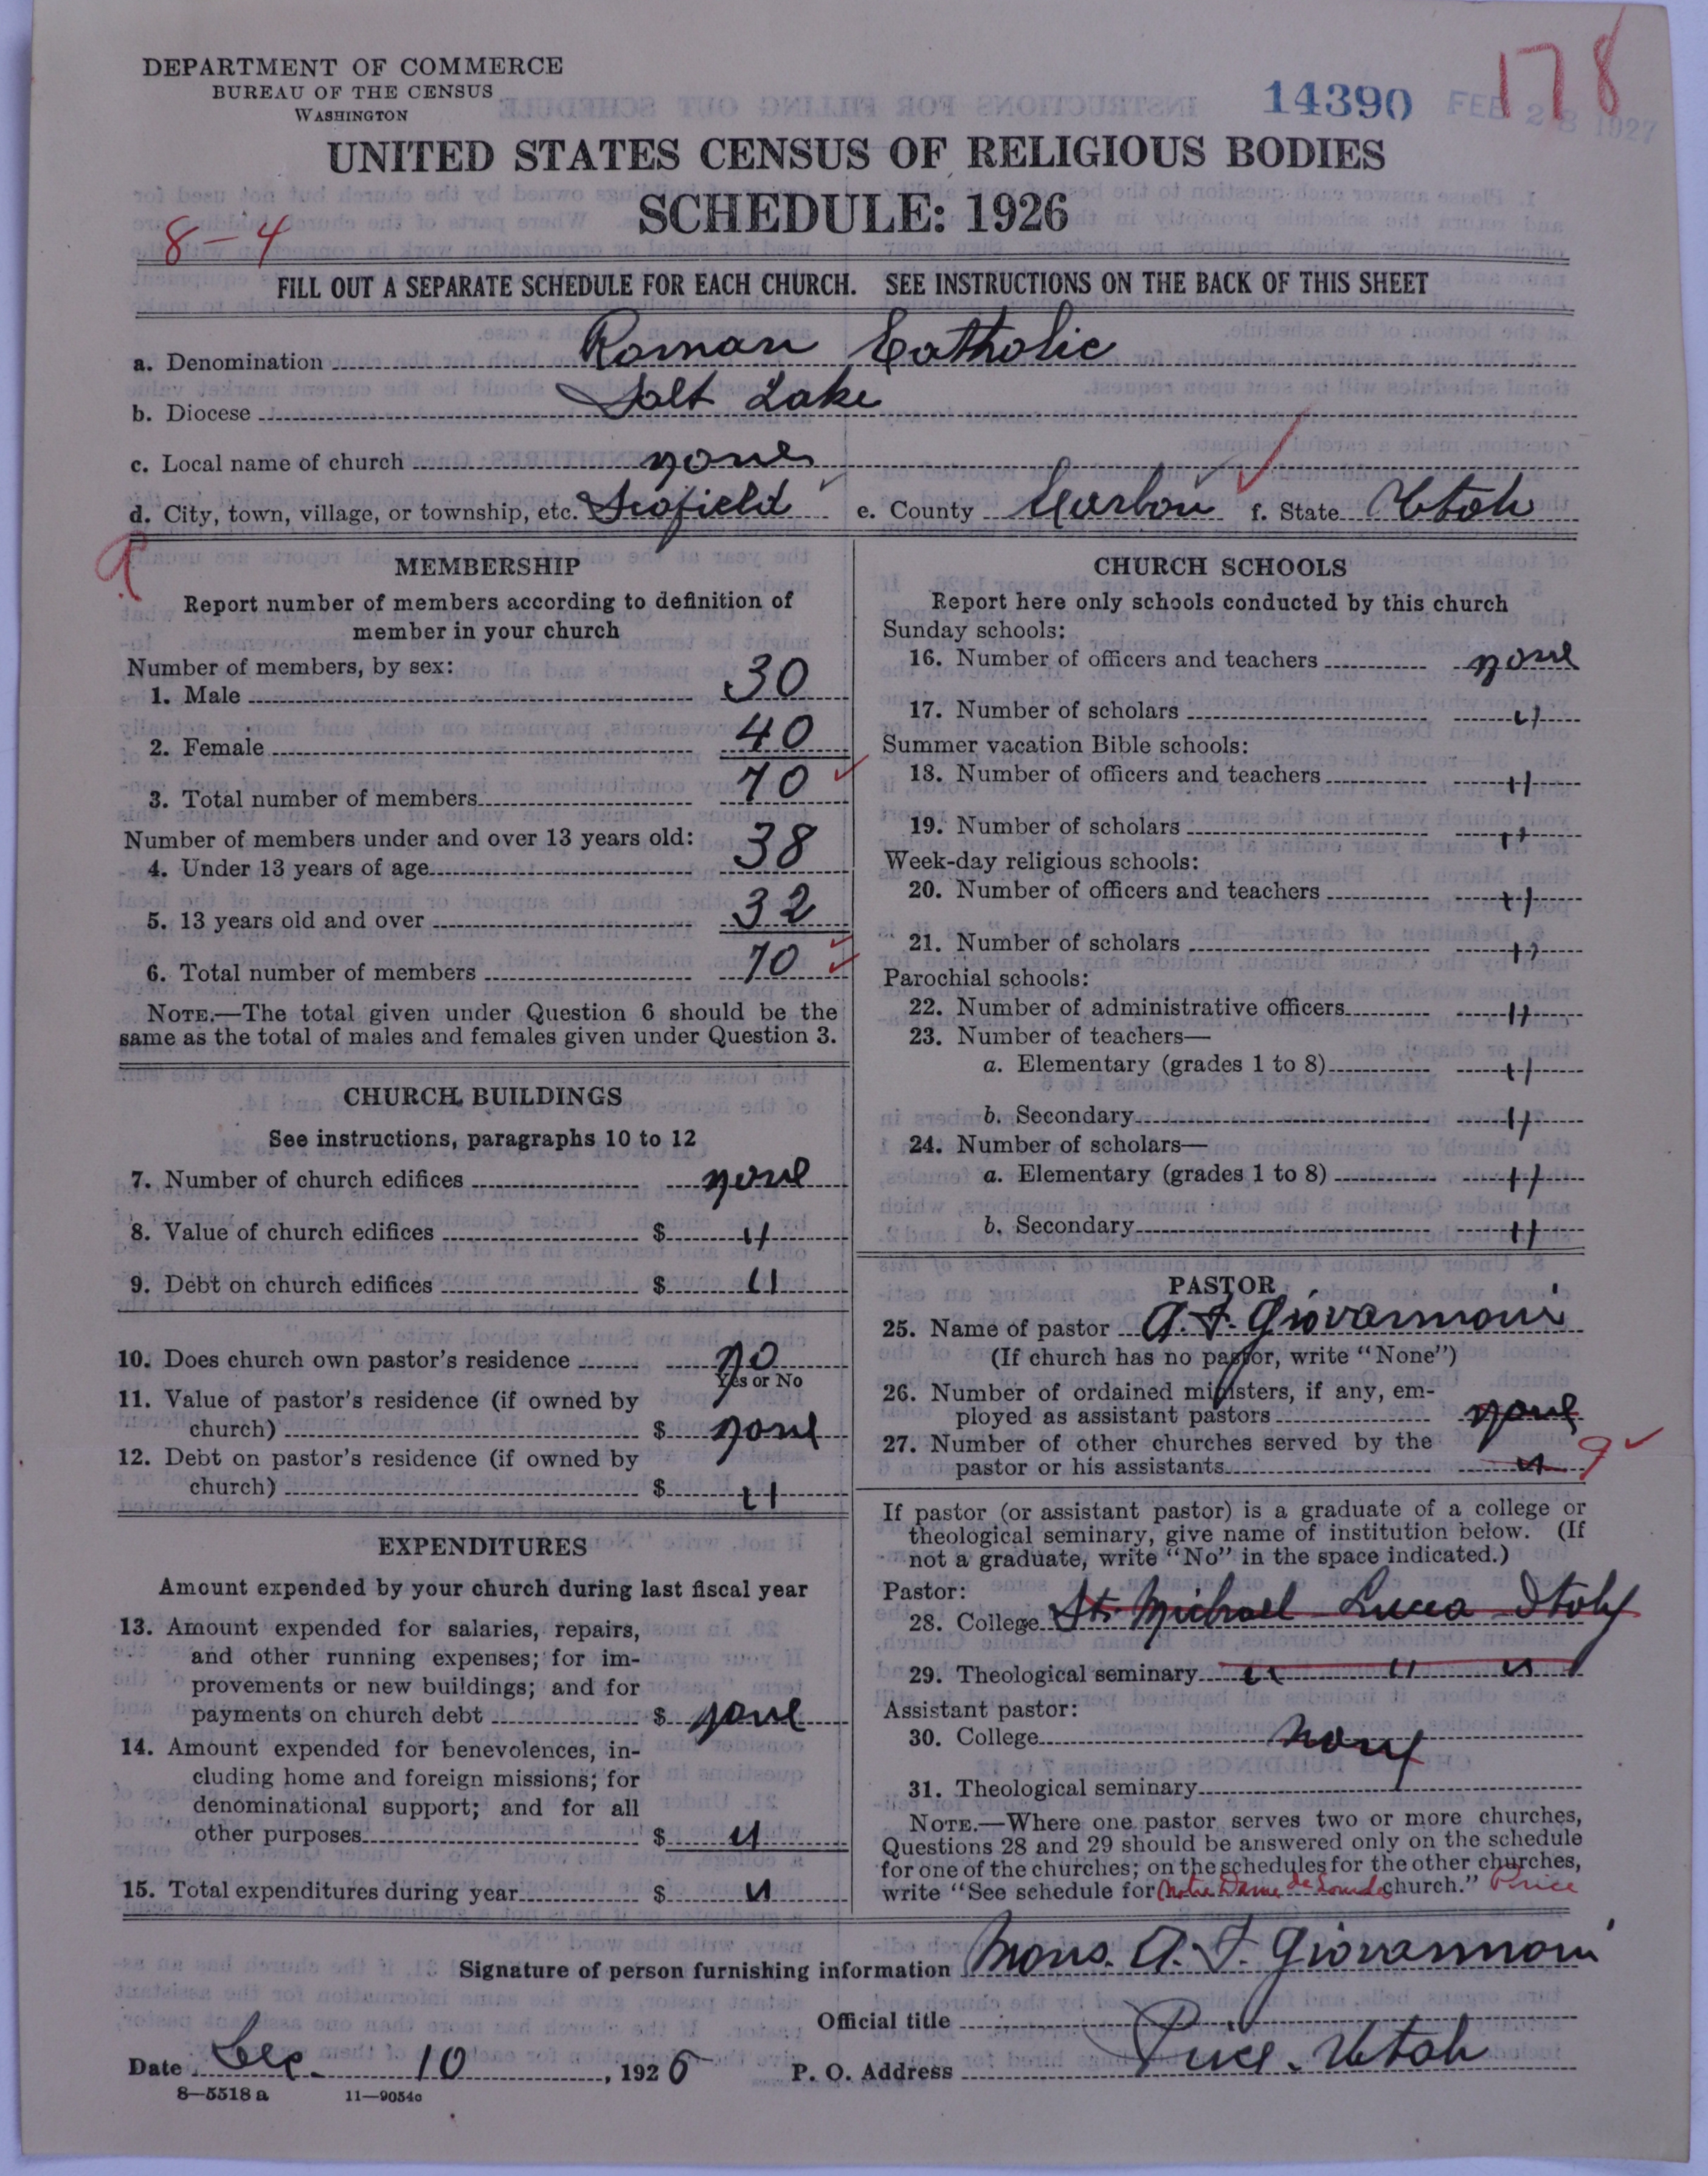 DEPARTMENT OF COMMERCE
BUREAU OF THE CENSUS
WASHINGTON
14390 FEB 28 1927
178
UNITED STATES CENSUS OF RELIGIOUS BODIES
SCHEDULE: 1926
8-4
FILL OUT A SEPARATE SCHEDULE FOR EACH CHURCH. SEE INSTRUCTIONS ON THE BACK OF THIS SHEET
a. Denomination Roman Catholic
b. Diocese Salt Lake
c. Local name of church none
d. City, town, village, or township, etc. Scofield e. County Carbon f. State Utah
MEMBERSHIP
Report number of members according to definition of
member in your church
Number of members, by sex:
1. Male 30
2. Female 40
3. Total number of members 70
Number of members under and over 13 years old:
4. Under 13 years of age 38
5. 13 years old and over 32
6. Total number of members 70
NOTE.—The total given under Question 6 should be the
same as the total of males and females given under Question 3.
CHURCH BUILDINGS
See instructions, paragraphs 10 to 12
7. Number of church edifices none
8. Value of church edifices $ "
9. Debt on church edifices $ "
10. Does church own pastor's residence no
Yes or No
11. Value of pastor's residence (if owned by
church) $ none
12. Debt on pastor's residence (if owned by
church) $ "
EXPENDITURES
Amount expended by your church during last fiscal year
13. Amount expended for salaries, repairs,
and other running expenses; for im-
provements or new buildings; and for
payments on church debt $ none
14. Amount expended for benevolences, in-
cluding home and foreign missions; for
denominational support; and for all
other purposes $ "
15. Total expenditures during year $ "
CHURCH SCHOOLS
Report here only schools conducted by this church
Sunday schools:
16. Number of officers and teachers none
17. Number of scholars "
Summer vacation Bible schools:
18. Number of officers and teachers "
19. Number of scholars "
Week-day religious schools:
20. Number of officers and teachers "
21. Number of scholars "
Parochial schools:
22. Number of administrative officers "
23. Number of teachers—
a. Elementary (grades 1 to 8) "
b. Secondary "
24. Number of scholars—
a. Elementary (grades 1 to 8) "
b. Secondary "
PASTOR
25. Name of pastor A. F. Giovannoni
(If church has no pastor, write "None")
26. Number of ordained ministers, if any, em-
ployed as assistant pastors none
27. Number of other churches served by the
pastor or his assistants " 9
If pastor (or assistant pastor) is a graduate of a college or
theological seminary, give name of institution below. (If
not a graduate, write "No" in the space indicated.)
Pastor:
28. College St. Michael Lucca Italy
29. Theological seminary " " "
Assistant pastor:
30. College none
31. Theological seminary
NOTE.—Where one pastor serves two or more churches,
Questions 28 and 29 should be answered only on the schedule
for one of the churches; on the schedules for the other churches,
write "See schedule for Notre Dame de Lourdes church." Price
Signature of person furnishing information Mons. A. F. Giovannoni
Official title
Date Dec. 10, 1926 P. O. Address Price, Utah
8—5518 a 11—9054c